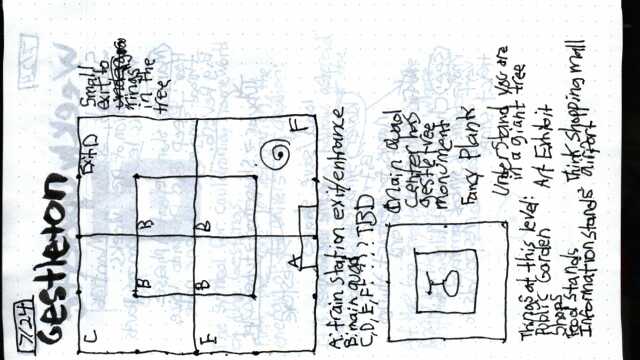 7/24
Gestleton
C
Exit D
B
B
E
B
B
A
F
Small
exit to
rings
in the
tree
A: train station exit/entrance
B: main quad
C, D, E, F - ? ? ? TBD
Main Quad
Center has
gestle tree
monument
Fancy Plants
Understand you are
in a giant tree
Things at this level:
Public Garden
Shops
Food stands
Information stands
Art Exhibit
Think shopping mall
airport